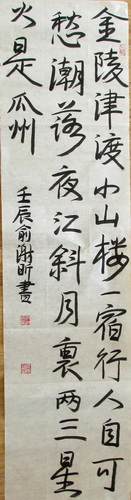 金陵津渡小山楼一宿行人自可
愁潮落夜江斜月裏两三星
火是瓜州
壬辰俞谢昕書